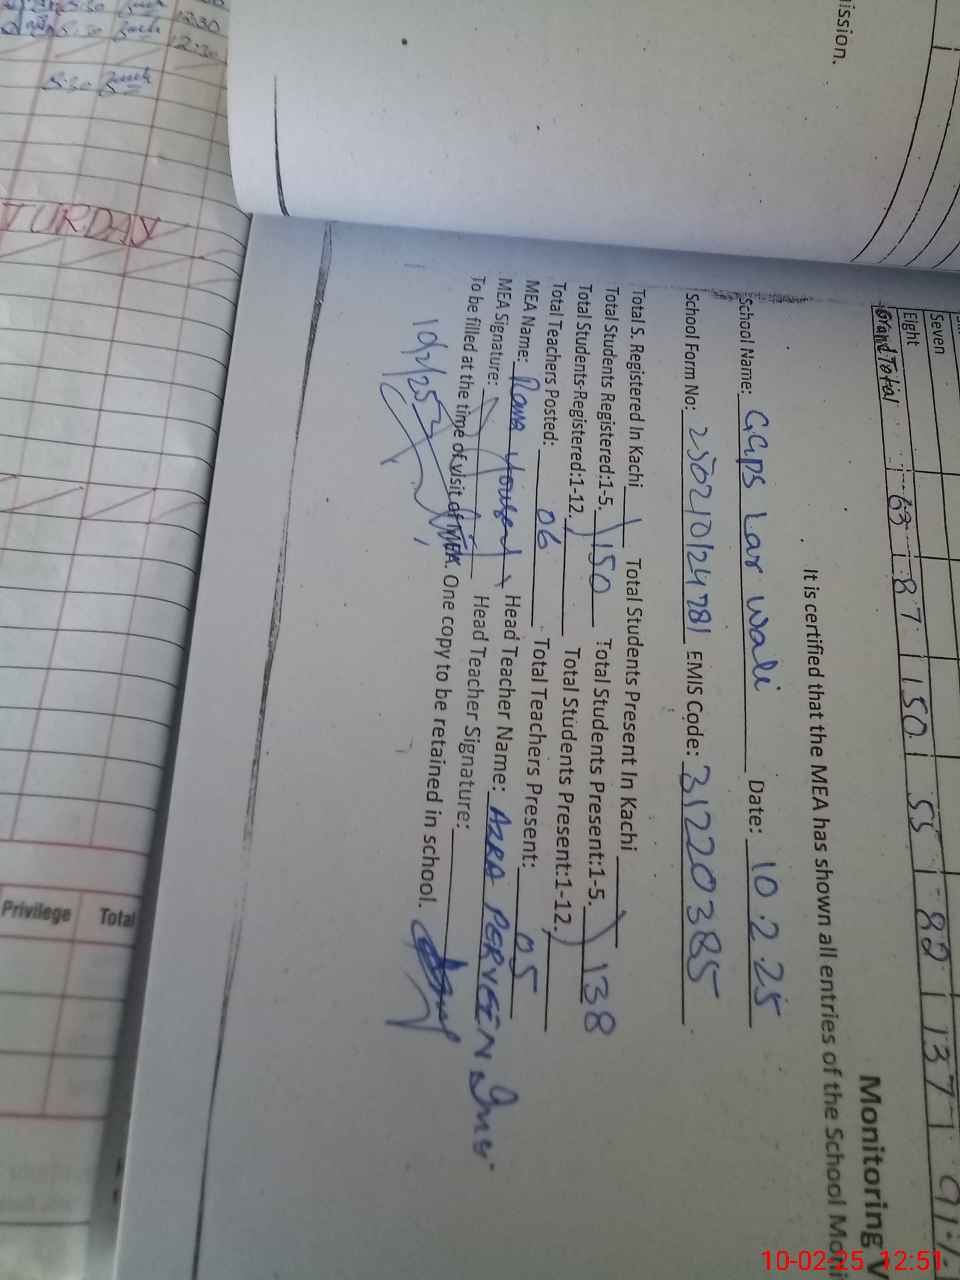 ission.
Seven
Eight
Grand Total 63 87 150 55 82 137 91%
Monitoring V
It is certified that the MEA has shown all entries of the School Moni
School Name: GGPS Lar wali Date: 10.2.25
School Form No: 250210124781 EMIS Code: 31220385
Total S. Registered In Kachi Total Students Present In Kachi
Total Students Registered:1-5. 150 Total Students Present:1-5. 138
Total Students-Registered:1-12. Total Students Present:1-12.
Total Teachers Posted: 06 Total Teachers Present: 05
MEA Name: Rana Yousaf Head Teacher Name: AZRA PERVEEN
MEA Signature: Head Teacher Signature:
To be filled at the time of visit of MEA. One copy to be retained in school.
10/2/25
12:30
8:30 12:30
8:30
TURDAY
Privilege Total
10-02-25 12:51